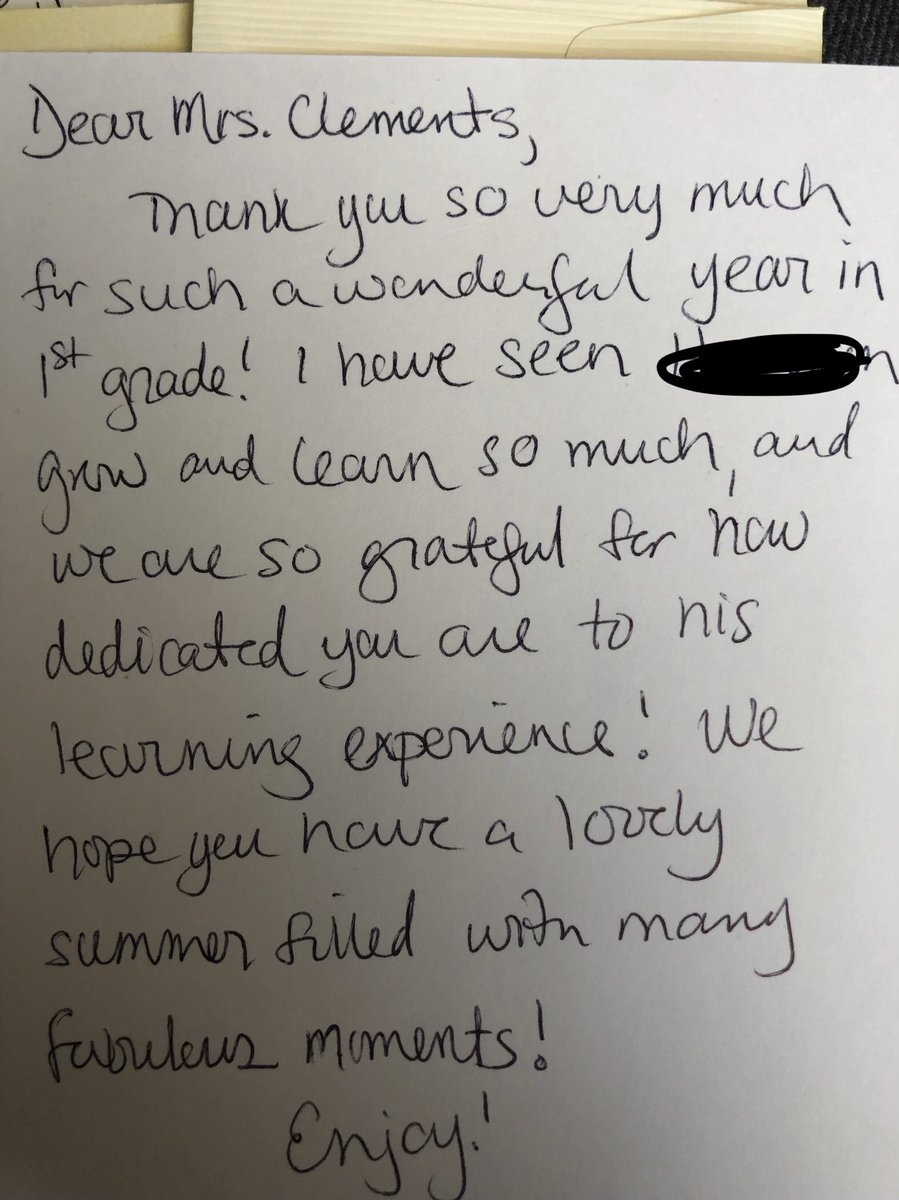 Dear Mrs. Clements,
Thank you so very much
for such a wonderful year in
1st grade! I have seen
grow and learn so much, and
we are so grateful for how
dedicated you are to his
learning experience! We
hope you have a lovely
summer filled with many
fabulous moments!
Enjoy!